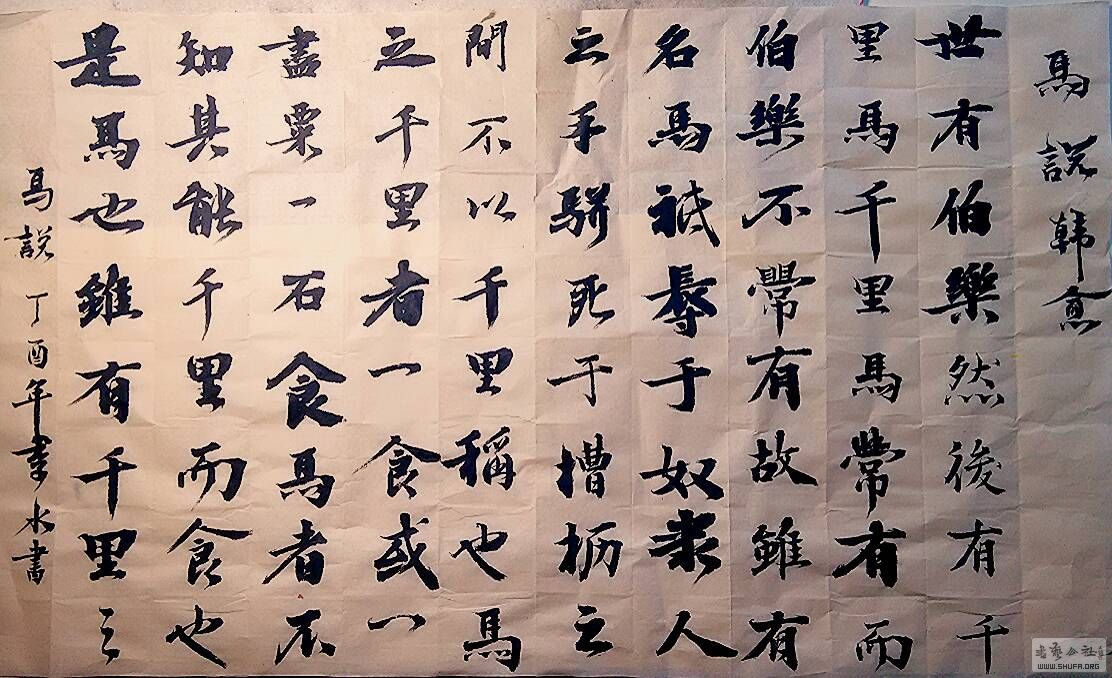 馬說韩愈
世有伯樂然後有千
里馬千里馬常有而
伯樂不常有故雖有
名馬祗辱于奴隶人
之手駢死于槽枥之
間不以千里稱也馬
之千里者一食或一
盡粟一石食馬者不
知其能千里而食也
是馬也雖有千里之
馬說丁酉年李水書
WWW.SHUFA.ORG